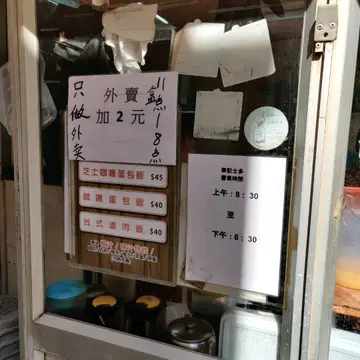 只做外卖
外賣
加2元
11點18点
芝士咖喱蛋包飯 $45
咖喱蛋包飯 $40
台式滷肉飯 $40
章記士多
營業時間
上午:8:30
至
下午:8:30